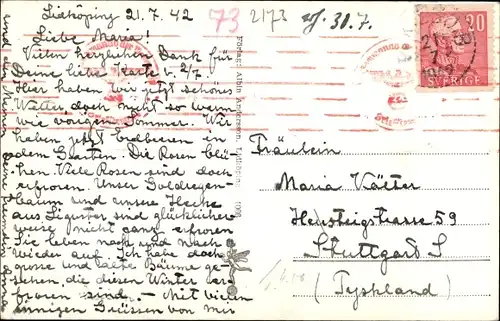 Lidköping 21.7.42
73
2173
30.7.
Liebe Maria!
Vielen herzlichen Dank für
Deine liebe Karte v. 2/7.
Hier haben wir jetzt schönes
Wetter, doch nicht so warm
wie vorigen Sommer. Wir
haben jetzt Erdbeeren in
dem Garten. Die Rosen blü-
hen. Viele Rosen sind doch
erfroren. Unser Goldregen-
baum und unsere Hecke
aus Liguster sind glücklicher-
weise nicht ganz erfroren
Sie leben noch und nach
wieder auf. Ich habe doch
grosse und Bäume ge-
sehen, die diesen Winter er-
froren sind. – Mit vielen
innigen Grüssen von mir
und
Förlag: Albin Andersson, Lidköping
20
SVERIGE
Fräulein
Maria Kälter
Heusteigstrasse 59
Stuttgart S
(Tyskland)